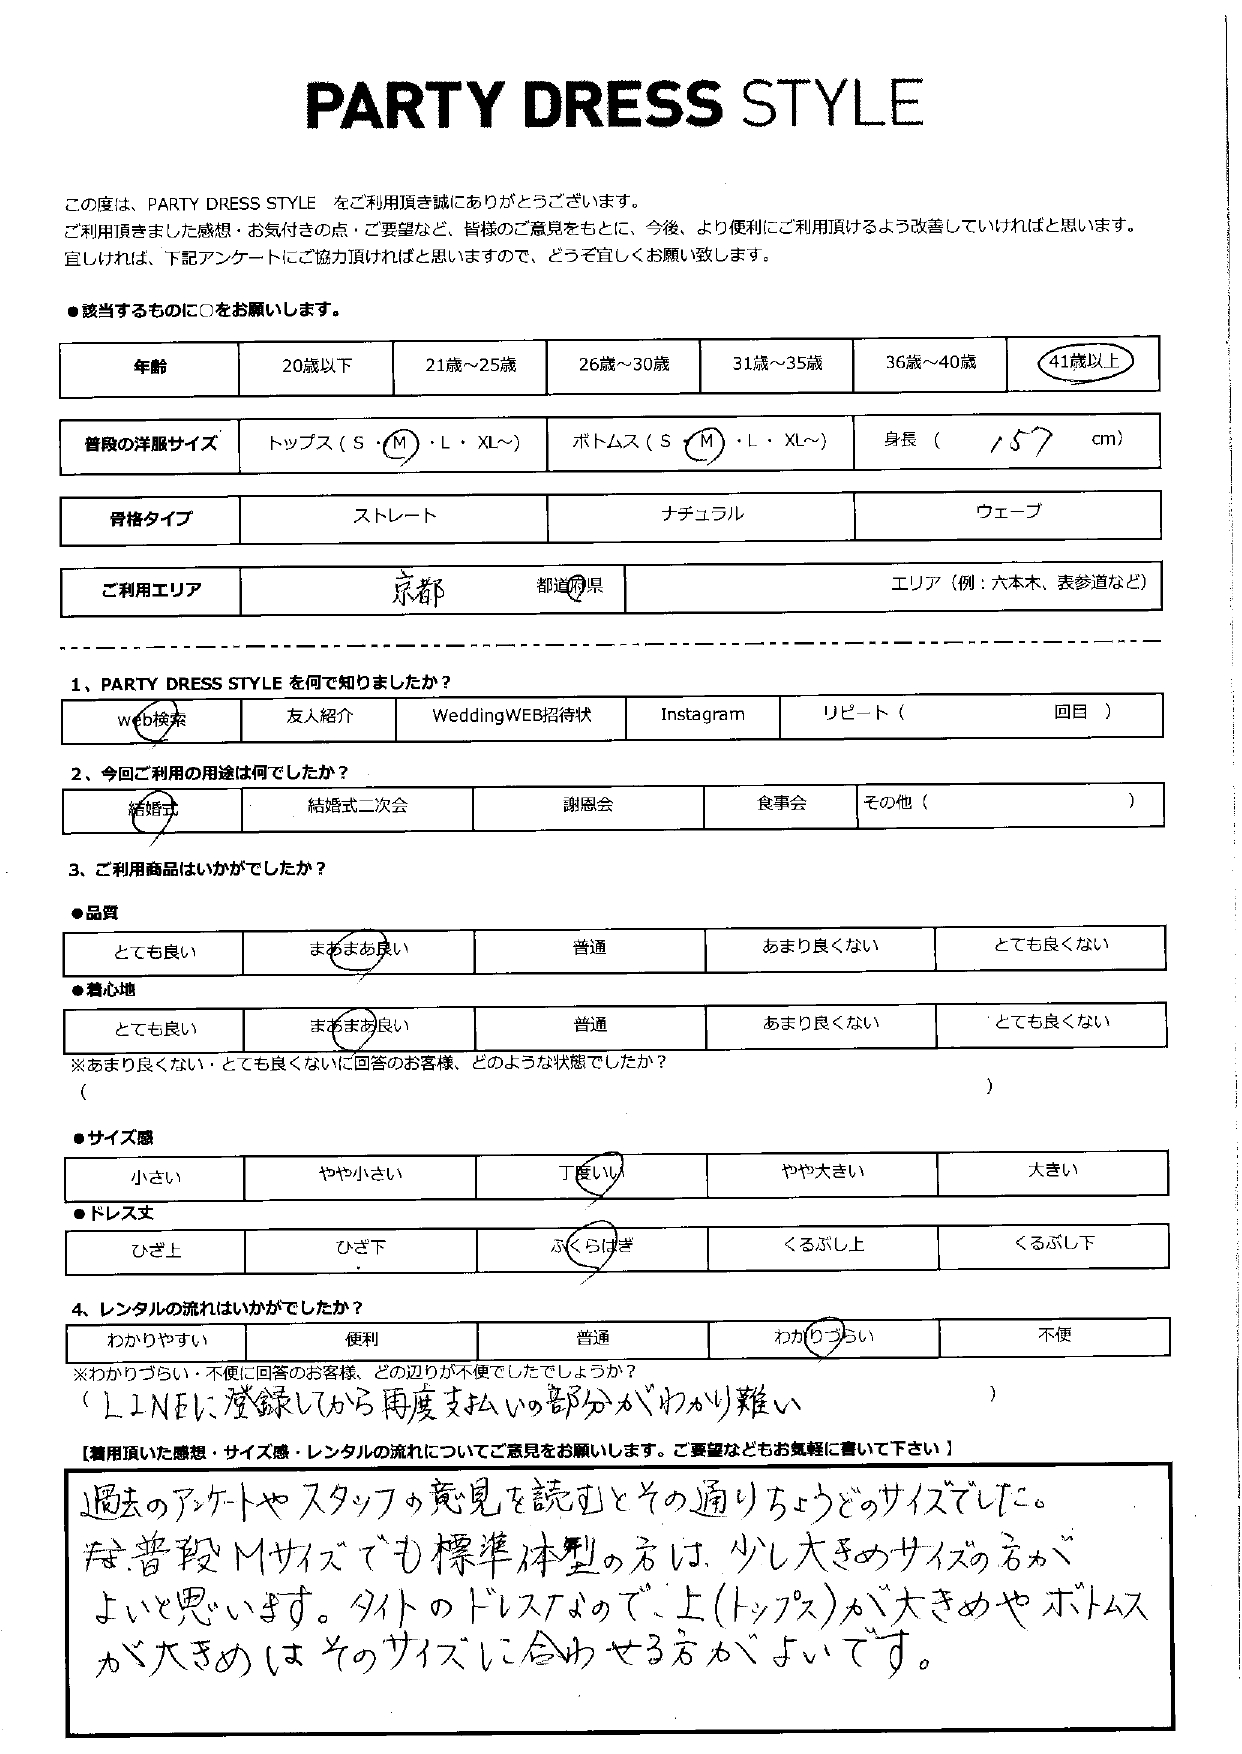 PARTY DRESS STYLE
この度は、PARTY DRESS STYLE をご利用頂き誠にありがとうございます。
ご利用頂きました感想・お気付きの点・ご要望など、皆様のご意見をもとに、今後、より便利にご利用頂けるよう改善していければと思います。
宜しければ、下記アンケートにご協力頂ければと思いますので、どうぞ宜しくお願い致します。
●該当するものに○をお願いします。
年齢 20歳以下 21歳～25歳 26歳～30歳 31歳～35歳 36歳～40歳 41歳以上
普段の洋服サイズ トップス ( S ・ M ・ L ・ XL～) ボトムス ( S ・ M ・ L ・ XL～) 身長 ( 157 cm)
骨格タイプ ストレート ナチュラル ウェーブ
ご利用エリア 京都 都道府県 エリア（例：六本木、表参道など）
1、PARTY DRESS STYLE を何で知りましたか？
web検索 友人紹介 WeddingWEB招待状 Instagram リピート（ 回目 ）
2、今回ご利用の用途は何でしたか？
結婚式 結婚式二次会 謝恩会 食事会 その他（ ）
3、ご利用商品はいかがでしたか？
●品質
とても良い まあまあ良い 普通 あまり良くない とても良くない
●着心地
とても良い まあまあ良い 普通 あまり良くない とても良くない
※あまり良くない・とても良くないに回答のお客様、どのような状態でしたか？
（ ）
●サイズ感
小さい やや小さい 丁度いい やや大きい 大きい
●ドレス丈
ひざ上 ひざ下 ふくらはぎ くるぶし上 くるぶし下
4、レンタルの流れはいかがでしたか？
わかりやすい 便利 普通 わかりづらい 不便
※わかりづらい・不便に回答のお客様、どの辺りが不便でしたでしょうか？
（ LINEに登録してから再度支払いの部分がわかり難い ）
【着用頂いた感想・サイズ感・レンタルの流れについてご意見をお願いします。ご要望などもお気軽に書いて下さい】
過去のアンケートやスタッフの意見を読むとその通りちょうどのサイズでした。
普段Mサイズでも標準体型の方は、少し大きめサイズの方が
よいと思います。タイトのドレスなので、上(トップス)が大きめやボトムス
が大きめはそのサイズに合わせる方がよいです。